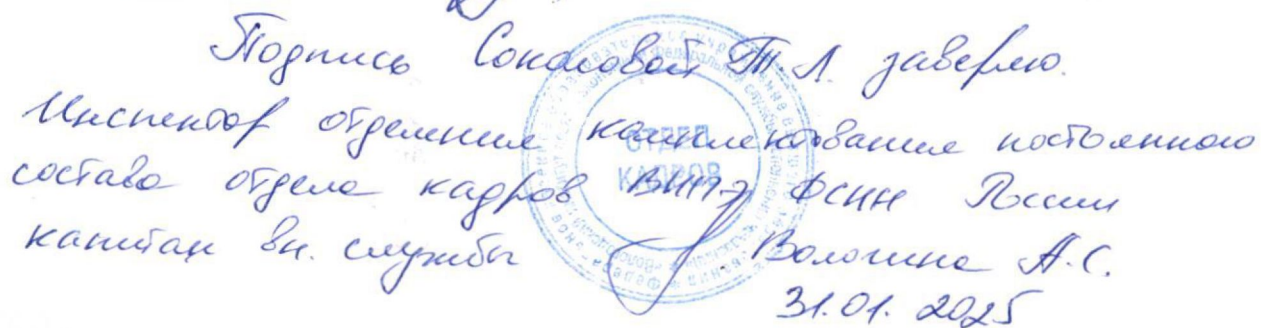 Подпись Соколовой Т.Л. заверяю.
Инспектор отделения комплектования постоянного
состава отдела кадров ВИПЭ ФСИН России
капитан вн. службы Вологина А.С.
31.01.2025
ОТДЕЛ
КАДРОВ